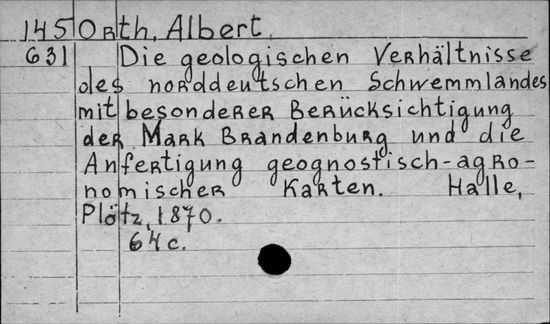 145 Orth, Albert.
631 Die geologischen Verhältnisse
des norddeutschen Schwemmlandes
mit besonderer Berücksichtigung
der Mark Brandenburg und die
Anfertigung geognostisch-agro-
nomischer Karten. Halle,
Plötz, 1870.
64 c.